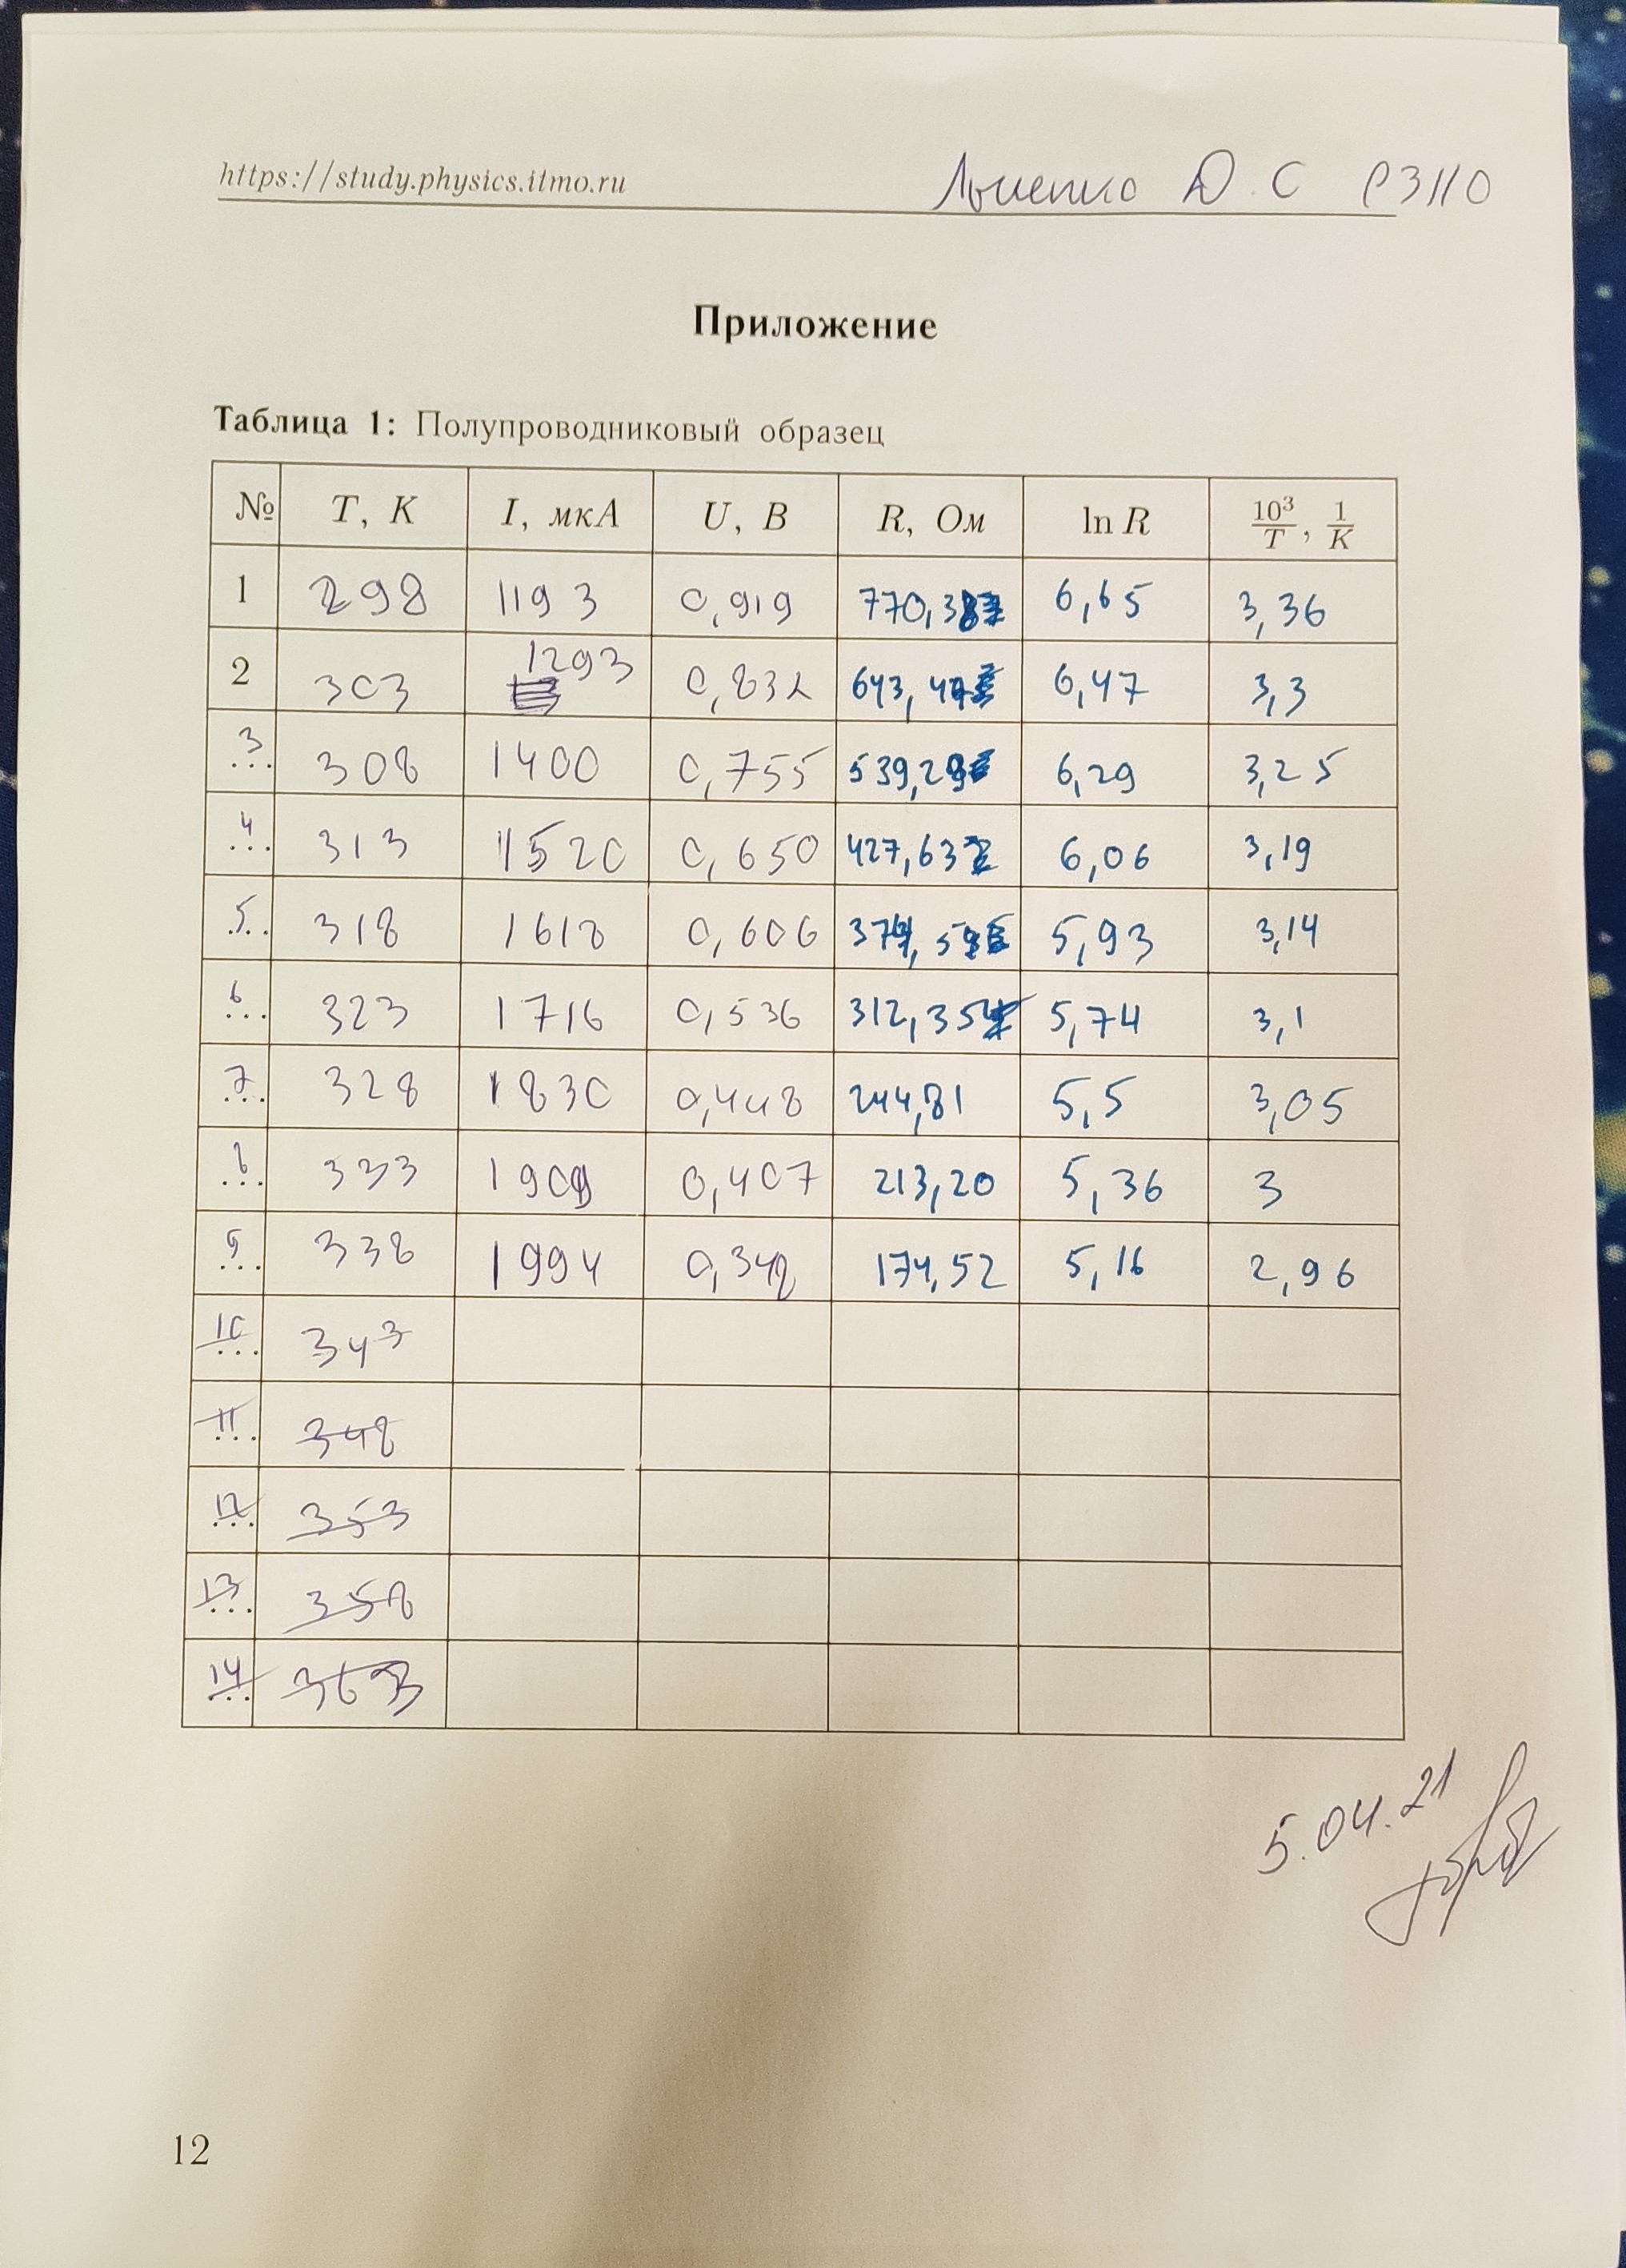 https://study.physics.itmo.ru
Д. С P3110
Приложение
Таблица 1: Полупроводниковый образец
№ T, K I, мкА U, В R, Ом ln R 10³/T, 1/K
1 298 1193 0,919 770,3 6,65 3,36
2 303 1293 0,832 643,4 6,47 3,3
3 ... 308 1400 0,755 539,2 6,29 3,25
4 ... 313 1520 0,650 427,63 6,06 3,19
5 ... 318 1618 0,606 374,5 5,93 3,14
6 ... 323 1716 0,536 312,35 5,74 3,1
7 ... 328 1830 0,448 244,81 5,5 3,05
8 ... 333 1909 0,407 213,20 5,36 3
9 ... 338 1994 0,348 174,52 5,16 2,96
10 ... 343
11 ... 348
12 ... 353
13 ... 358
14 ... 363
5.04.21
12